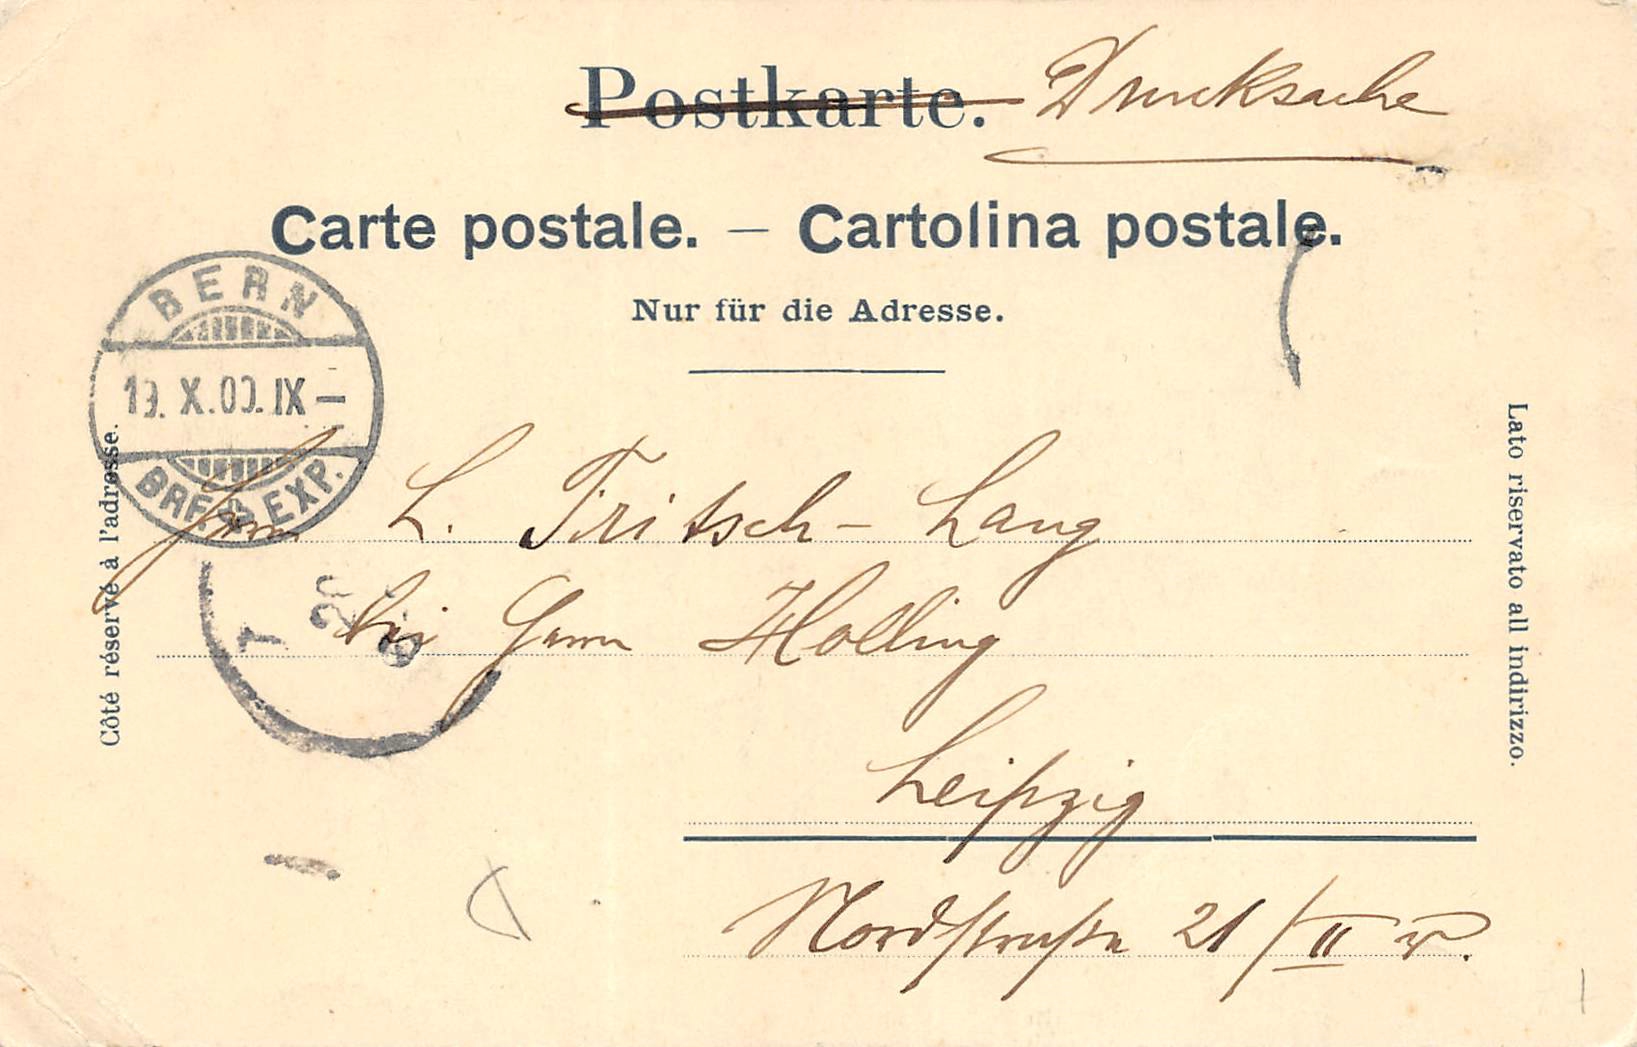 Postkarte. Drucksache
Carte postale. — Cartolina postale.
Nur für die Adresse.
BERN
19. X. 00. IX –
BRF. EXP.
Côté réservé à l'adresse.
Lato riservato all indirizzo.
Herrn L. Fritsch - Lang
bei Herrn Holling
Leipzig
Nordstraße 21 / II r.
T
20